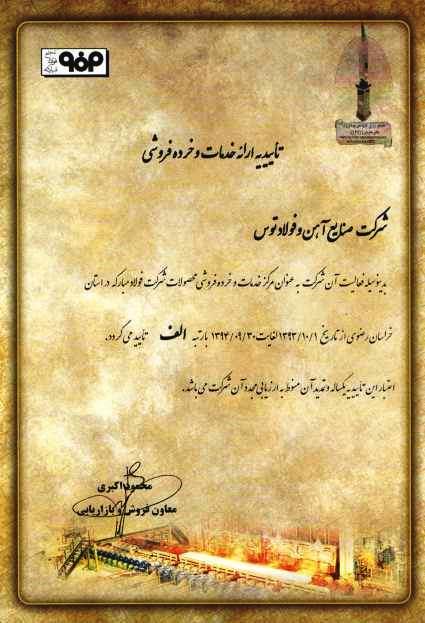 تأییدیه ارائه خدمات و خرده فروشی
شرکت صنایع آهن و فولاد توس
بدینوسیله فعالیت آن شرکت به عنوان مرکز خدمات و خرده فروشی محصولات شرکت فولاد مبارکه در استان
خراسان رضوی از تاریخ ۱۳۹۳/۱۰/۱ لغایت ۱۳۹۴/۰۹/۳۰ با رتبه الف تأیید می گردد.
اعتبار این تأییدیه یکساله و تمدید آن منوط به ارزیابی مجدد آن شرکت می باشد.
محمود اکبری
معاون فروش و بازاریابی